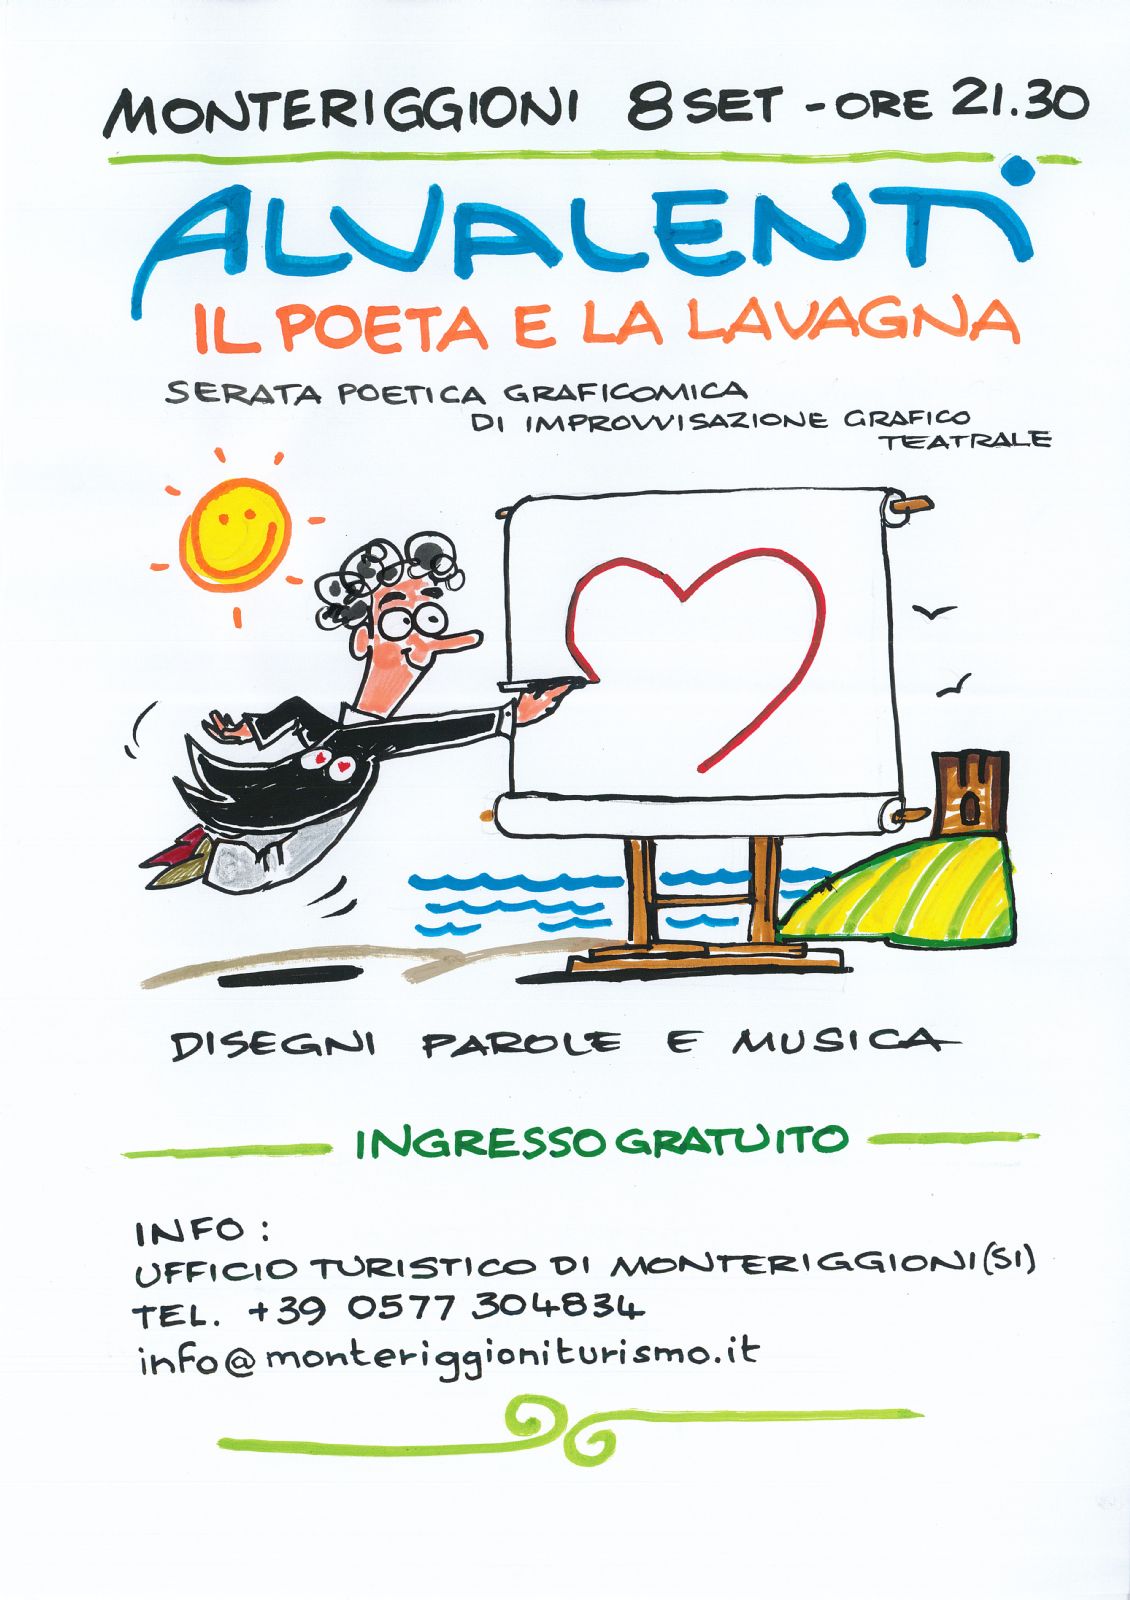 MONTERIGGIONI 8 SET - ORE 21.30
ALVALENTI
IL POETA E LA LAVAGNA
SERATA POETICA GRAFICOMICA
DI IMPROVVISAZIONE GRAFICO
TEATRALE
DISEGNI PAROLE E MUSICA
INGRESSO GRATUITO
INFO:
UFFICIO TURISTICO DI MONTERIGGIONI (SI)
TEL. +39 0577 304834
info@monteriggioniturismo.it